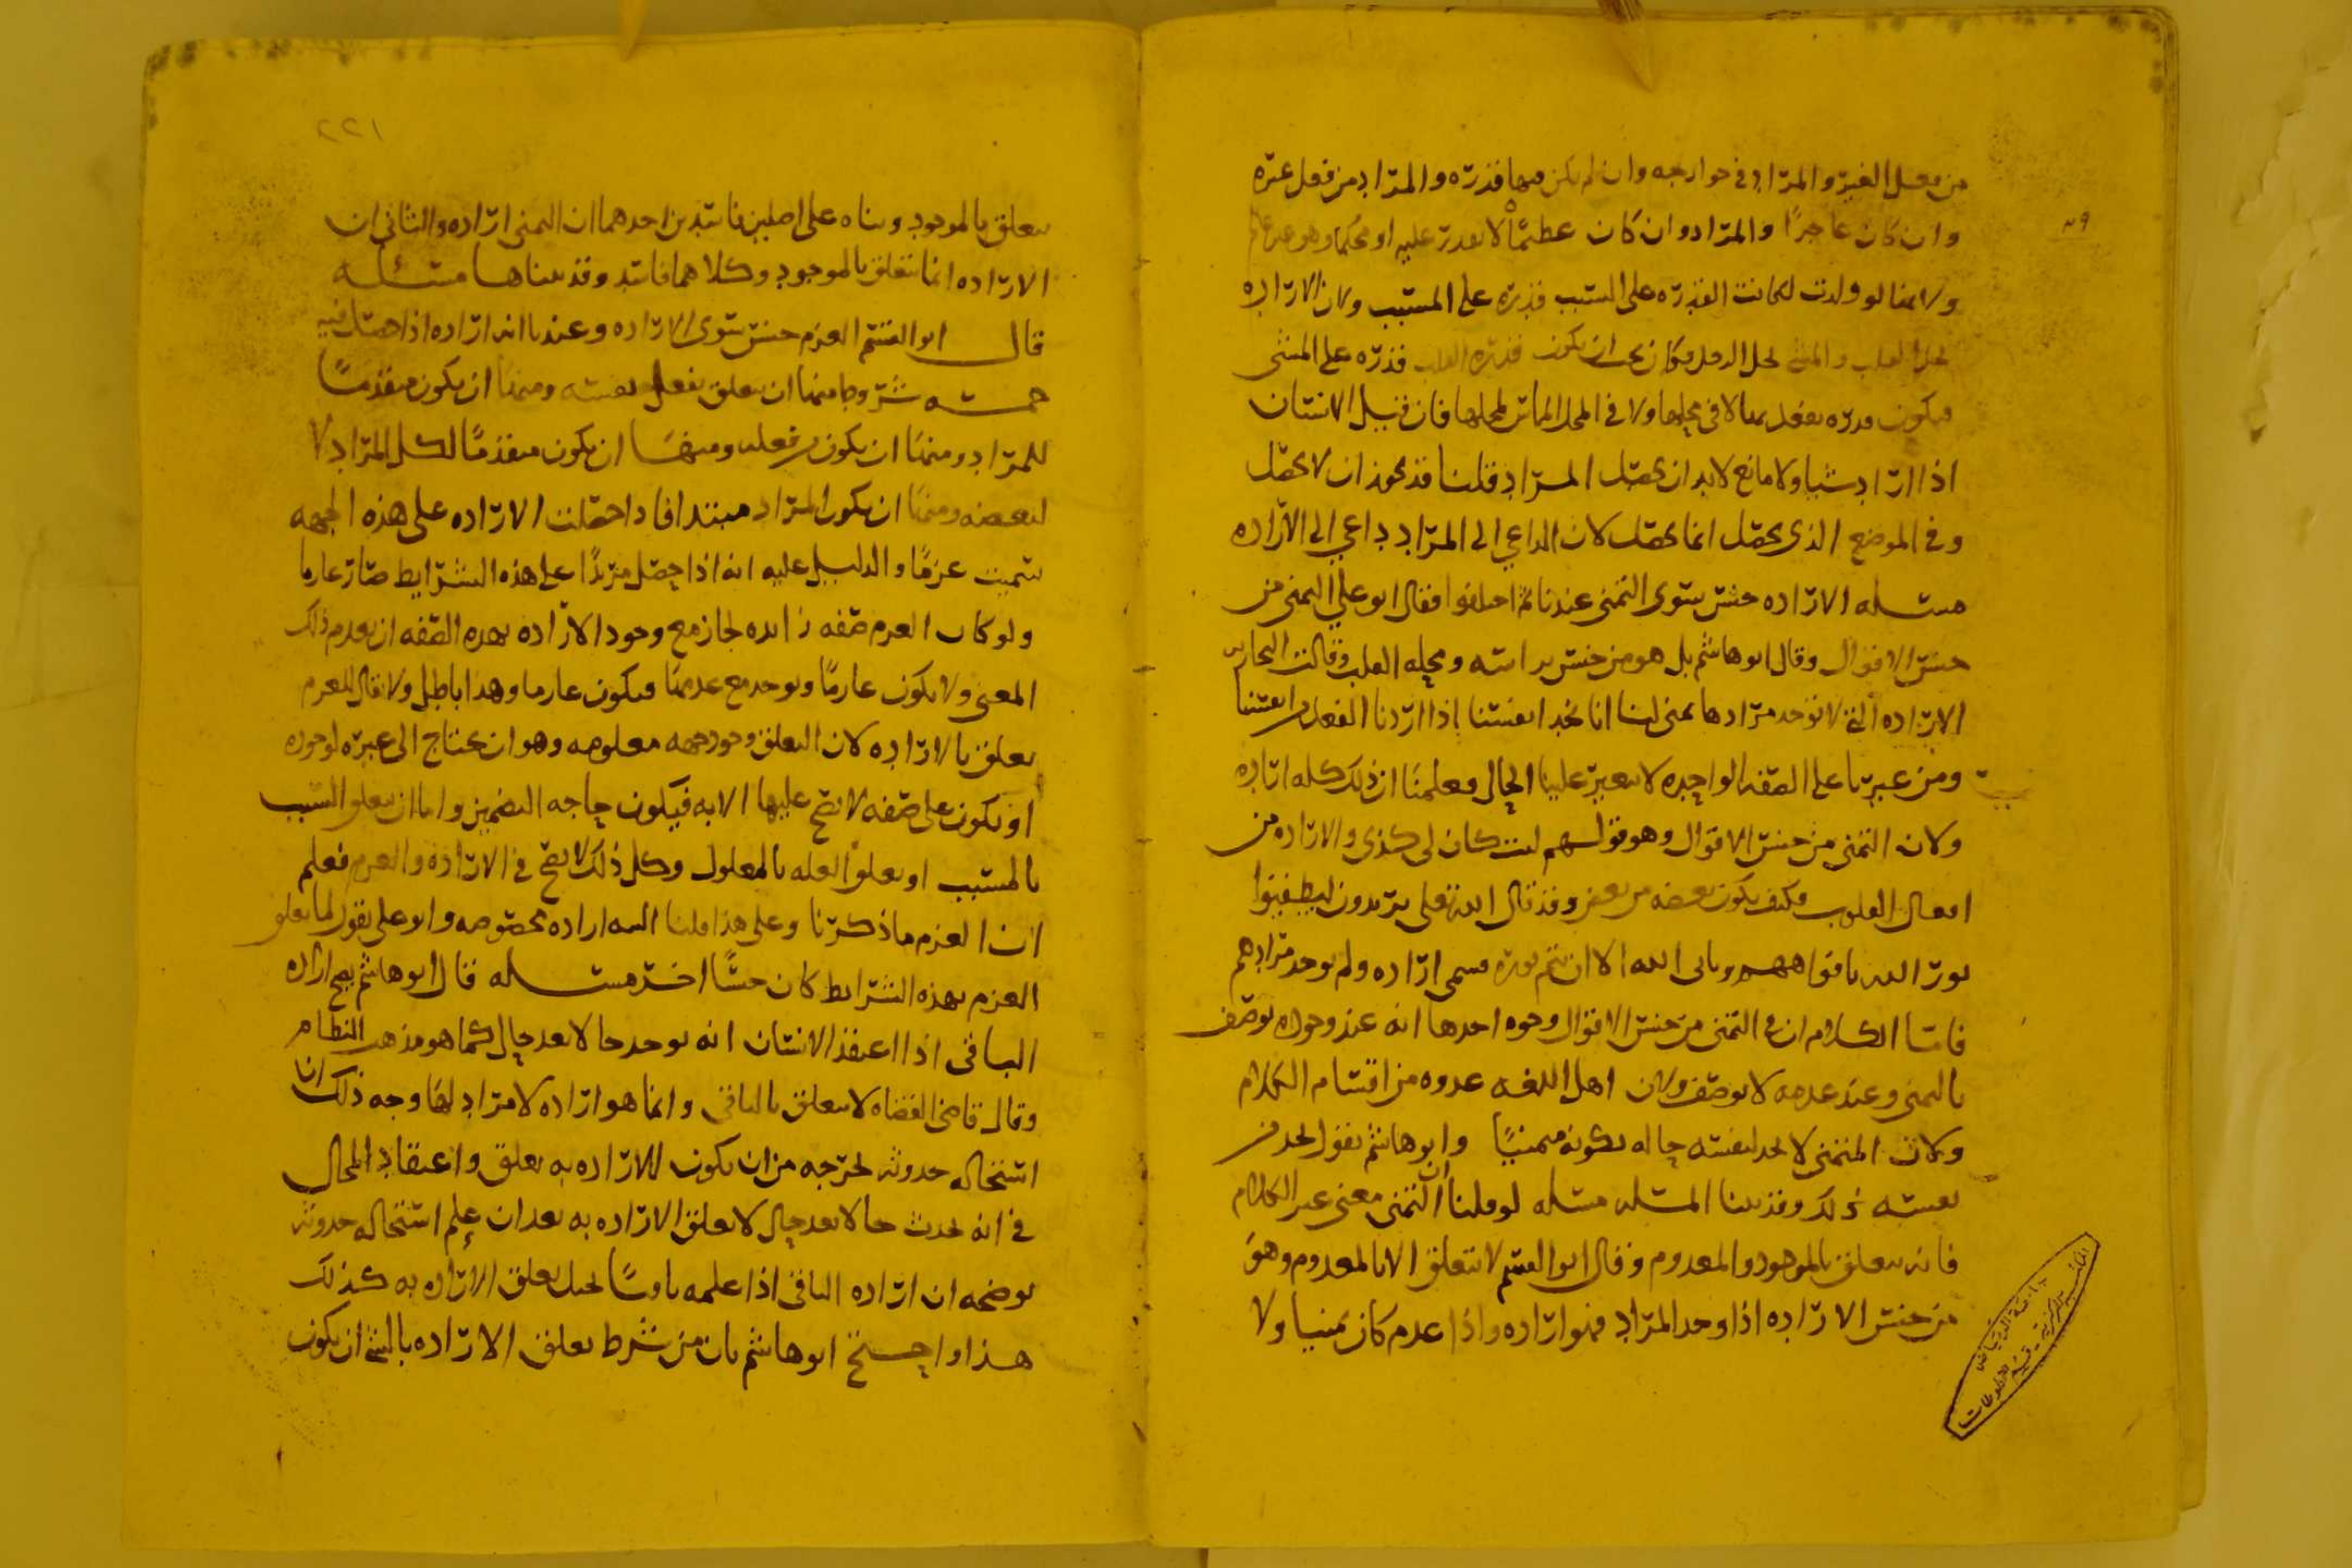 من فعل الغير والمراد في جوارحه وان لم يكن فيها قدره والمراد من فعل غيره
وان كان عاجزًا والمراد وان كان عظيمًا لا يقدر عليه او محكما وهو غير عالم
ولانها لو ولدت لكانت القدره على السبب قدره على المسبب ولان الاراده
تحل القلب والمشي يحل الرجل فكان يجب ان يكون قدره القلب قدره على المشي
فيكون قدره يفعل بها لا في محلها ولا في المحل المماس لمحلها فان قيل الانسان
اذا اراد شيا ولا مانع لابد ان يحصل المراد قلنا قد يجوز ان لا يحصل
وفي الموضع الذي يحصل انما يحصل لان الداعي الى المراد داعي الى الاراده
مسله الاراده جنس سوى التمنى عندنا ثم اختلفوا فقال ابو علي التمنى من
جنس الاقوال وقال ابو هاشم بل هو من جنس براسه ومحله القلب وقالت النجاريه
الاراده التي لا توجد مرادها تمنى لنا انا نجد انفسنا اذا اردنا الفعل من انفسنا
ومن غيرنا على الصفه الواحده لا يتغير علينا الحال فعلمنا ان ذلك كله اراده
ولان التمنى من جنس الاقوال وهو قولهم ليت كان لي كذى والاراده من
افعال القلوب فكيف يكون بعضه من بعض وقد قال الله تعلى يريدون ليطفئوا
نور الله بافواههم ويابى الله الا ان يتم نوره فسمى اراده ولم يوجد مرادهم
فاما الكلام ان التمنى من جنس الاقوال وجوه احدها انه عند وجوده يوصف
بالتمنى وعند عدمه لا يوصف ولان اهل اللغه عدوه من اقسام الكلام
ولان المتمني لا يجد لنفسه حاله بكونه متمنيًا وابو هاشم يقول يجد من
نفسه ذلك وقد بينا المسله مسله لو قلنا ان التمنى معنى غير الكلام
فانه يتعلق بالموجود والمعدوم وقال ابو القسم لا يتعلق الا بالمعدوم وهو
من جنس الاراده اذا وجد المراد فهو اراده واذا عدم كان تمنيا ولا
٢٢١
يتعلق بالموجود وبناه على اصلين فاسدين احدهما ان التمنى اراده والثاني ان
الاراده انما تتعلق بالموجود وكلاهما فاسد وقد بيناها مسئله
قال ابو القسم العزم جنس سوى الاراده وعندنا انه اراده اذا حصل فيه
خمسه شروط منها ان يتعلق بفعل نفسه ومنها ان يكون متقدمًا
للمراد ومنها ان يكون من فعله ومنها ان يكون متقدمًا لكل المراد لا
لبعضه ومنها ان يكون المراد مبتدا فاذا حصلت الاراده على هذه الجهه
سميت عزمًا والدليل عليه انه اذا حصل مريدًا على هذه الشرايط صار عازما
ولو كان العزم صفه زايده لجاز مع وجود الاراده بهذه الصفه ان يعدم ذلك
المعنى ولا يكون عازمًا ويوجد مع عدمها فيكون عازما وهذا باطل ولا يقال للعزم
تعلق بالاراده لان التعلق وجوه جهه معلومه وهو ان يحتاج الى غيره لوجوده
او يكون على صفه لا يصح عليها الا به فيكون حاجه التضمين واما ان يتعلق السبب
بالمسبب او تعلق العله بالمعلول وكل ذلك لا يصح في الاراده والعزم فعلم
ان العزم ما ذكرنا وعلى هذا قلنا النيه اراده مخصوصه وابو على يقول لما تعلق
العزم بهذه الشرايط كان جنسًا اخر مسله قال ابو هاشم يصح اراده
الباقي اذا اعتقد الانسان انه يوجد حالا بعد حال كما هو مذهب النظام
وقال قاضي القضاه لا يتعلق بالباقي وانما هو اراده لا مراد لها وجه ذلك ان
استحاله حدوثه يخرجه من ان يكون للاراده به تعلق واعتقاد المحال
في انه يحدث حالا بعد حال لا يعلق الاراده به بعد ان علم استحاله حدوثه
يوضحه ان اراده الباقي اذا علمه باقيًا يحيل تعلق الاراده به كذلك
هذا واحتج ابو هاشم بان من شرط تعلق الاراده بالشي ان يكون